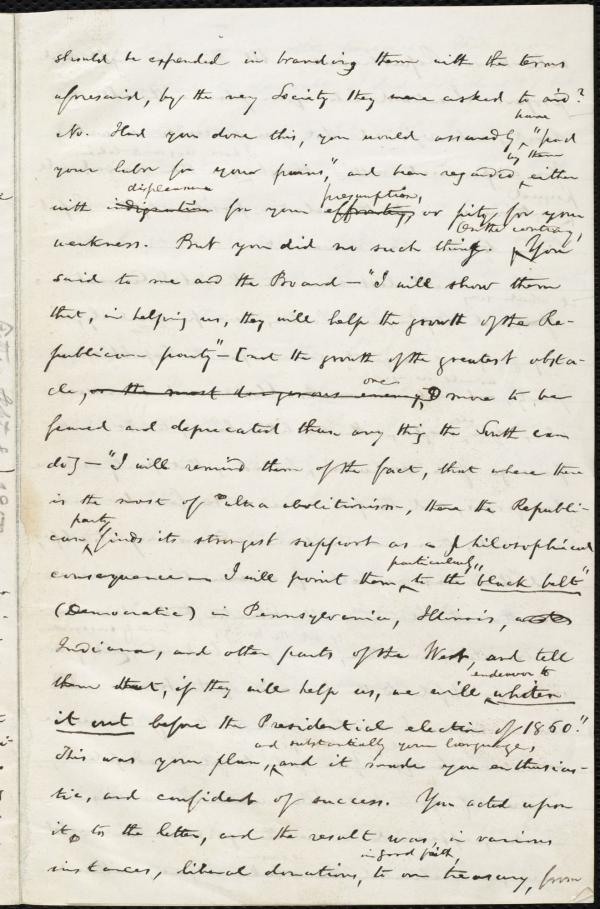 should be expended in branding them with the terms
aforesaid, by the very Society they were asked to aid?
have
No. Had you done this, you would assuredly "had
by them
your labor for your pains," and been regarded either
displeasure presumption,
with indignation for your effrontery, or pity for your
On the contrary,
weakness. But you did no such thing. You
said to me and the Board — "I will show them
that, in helping us, they will help the growth of the Re-
publican party" — [not the growth of the greatest obsta-
one
cle, or the most dangerous enemy,] more to be
feared and deprecated than any thing the South can
do] — "I will remind them of the fact, that where there
is the most of ultra abolitionism, there the Republi-
party
can finds its strongest support as a philosophical
particularly
consequence — I will point them to the "black belt"
(Democratic) in Pennsylvania, Illinois, and
Indiana, and other parts of the West, and tell
endeavor to
them that, if they will help us, we will whiten
it out before the Presidential election of 1860."
and substantially your language,
This was your plan, and it made you enthusias-
tic, and confident of success. You acted upon
it, to the letter, and the result was, in various
in good faith,
instances, liberal donations, to our treasury, from